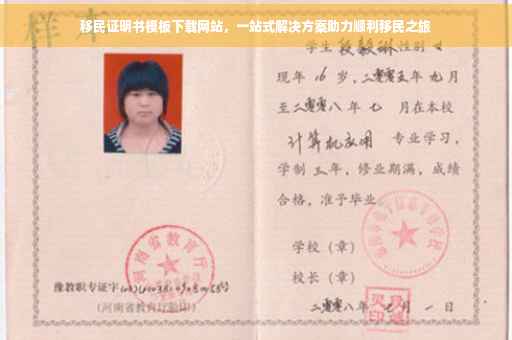 移民证明书模板下载网站，一站式解决方案助力顺利移民之旅
样本
学生段毅琳性别女
现年16岁，二零零五年九月
至二零零八年七月在本校
计算机应用 专业学习，
学制三年，修业期满，成绩
合格，准予毕业
学校（章）
校长（章）
二零零八年 月一日
河南省教育厅
豫教职专证字
（河南省教育厅验印）